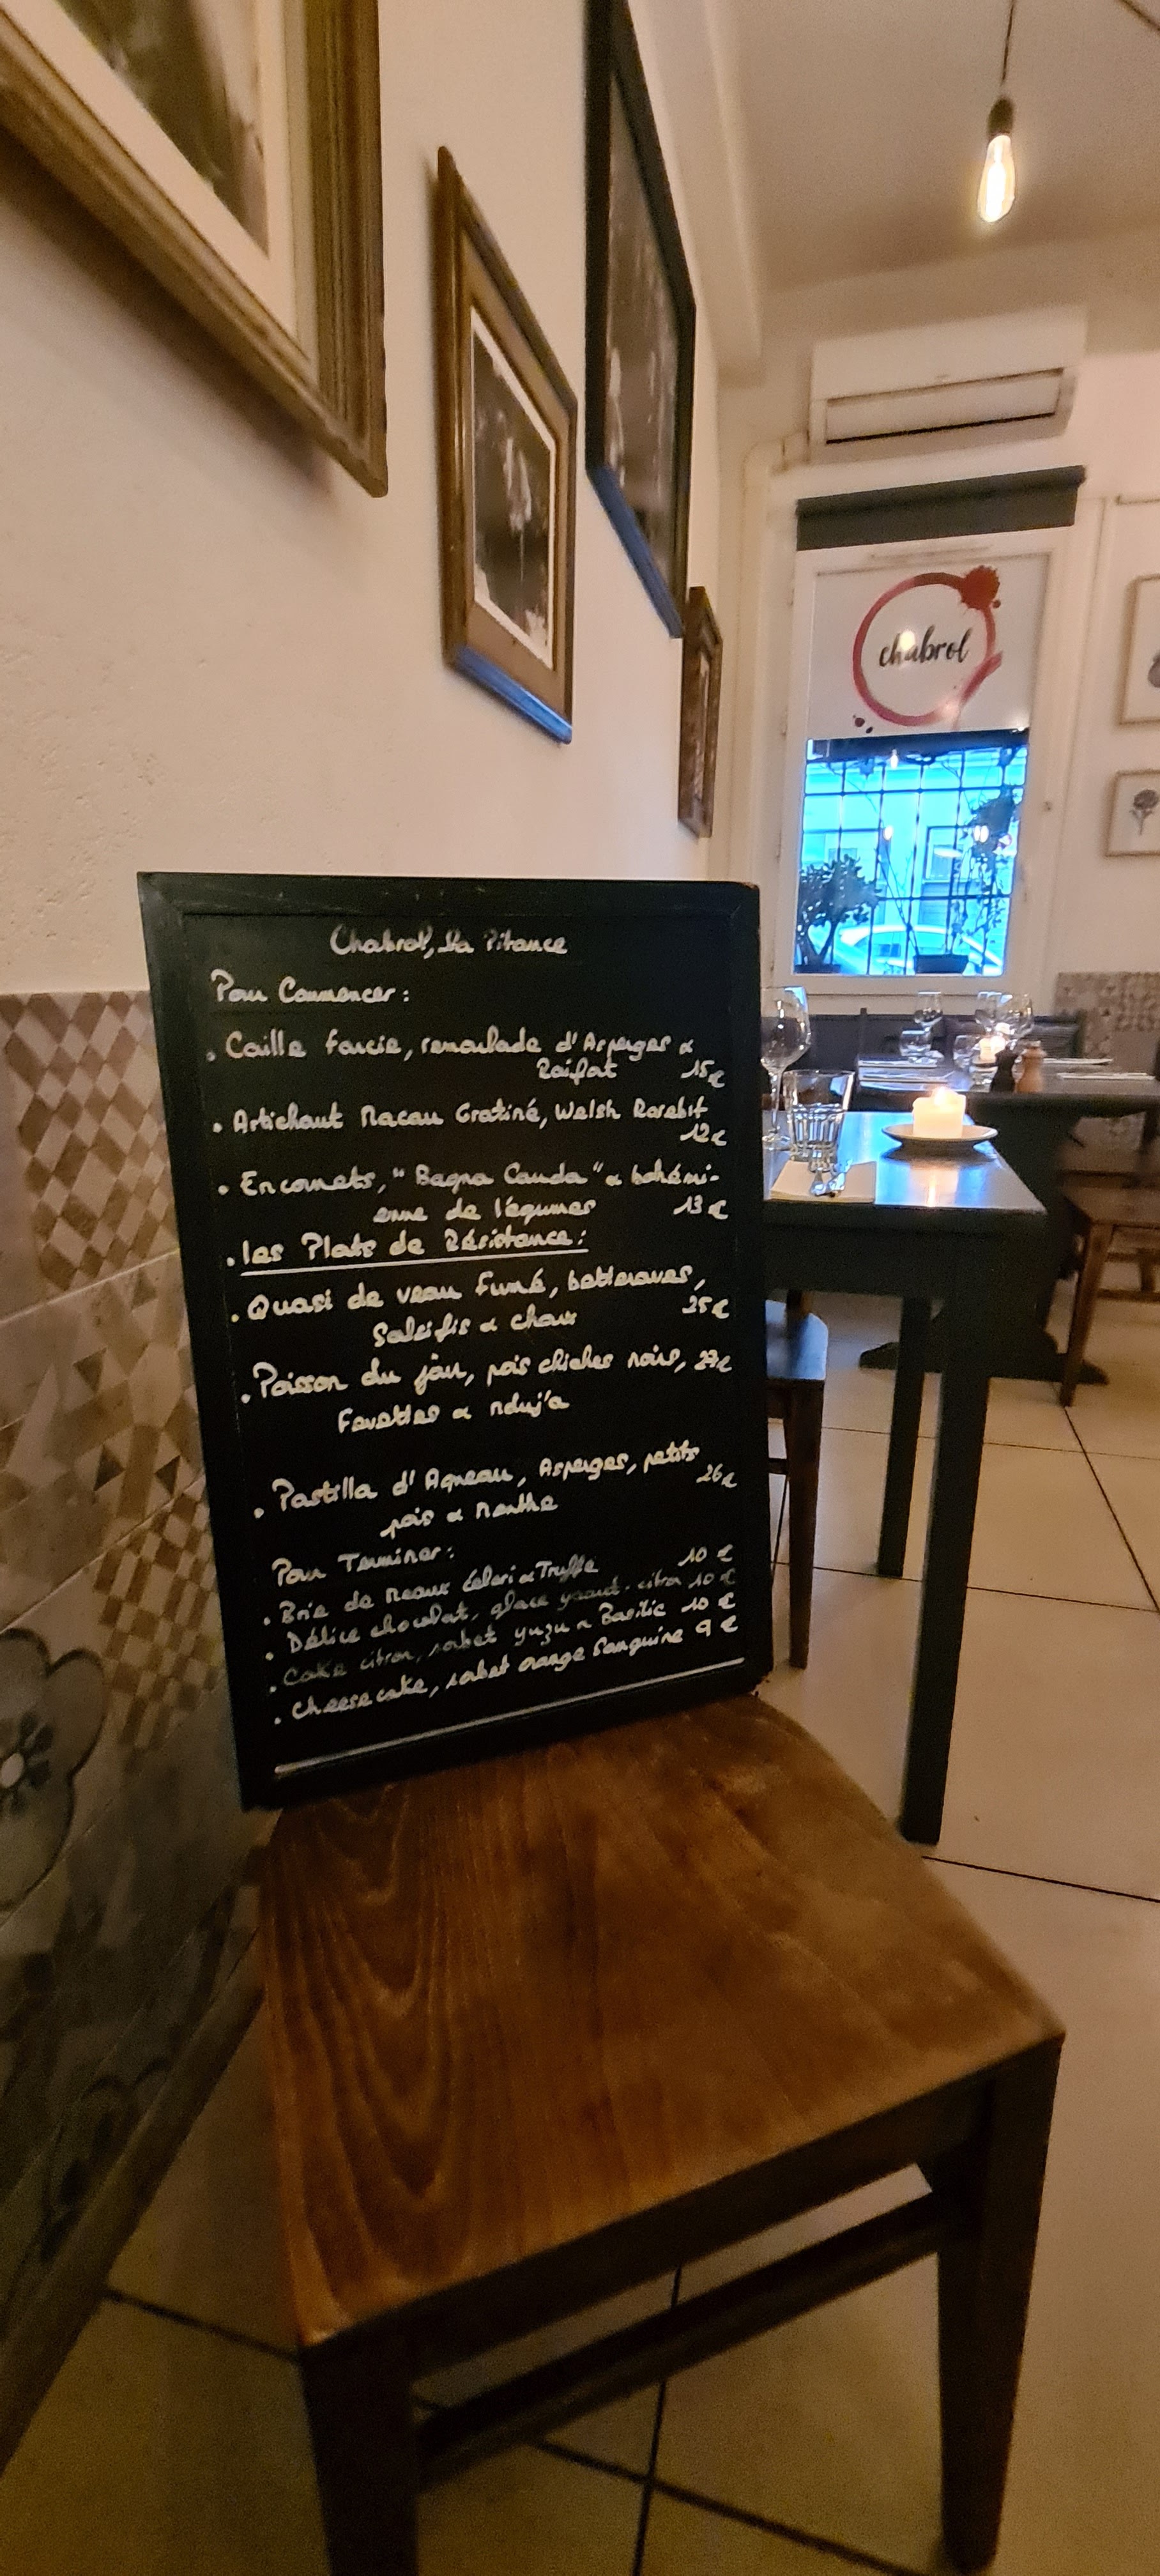 chabrol
Chabrol, La Pitance
Pour Commencer :
• Caille farcie, remoulade d'Asperges &
Raifort 15€
• Artichaut Macau Gratiné, Welsh Rarebit
12€
• Encornets, "Bagna Cauda" & bohémi-
enne de légumes 13€
• Les Plats de Résistance :
• Quasi de veau Fumé, betteraves,
Salsifis & choux 25€
• Poisson du jour, pois chiches noirs, 27€
Fevettes & nduj'a
• Pastilla d'Agneau, Asperges, petits
pois & Menthe 26€
Pour Terminer :
• Brie de Meaux Céleri & Truffe 10 €
• Délice chocolat, glace yaourt-citron 10 €
• Cake citron, sorbet yuzu & Basilic 10 €
• Cheesecake, sorbet orange Sanguine 9 €